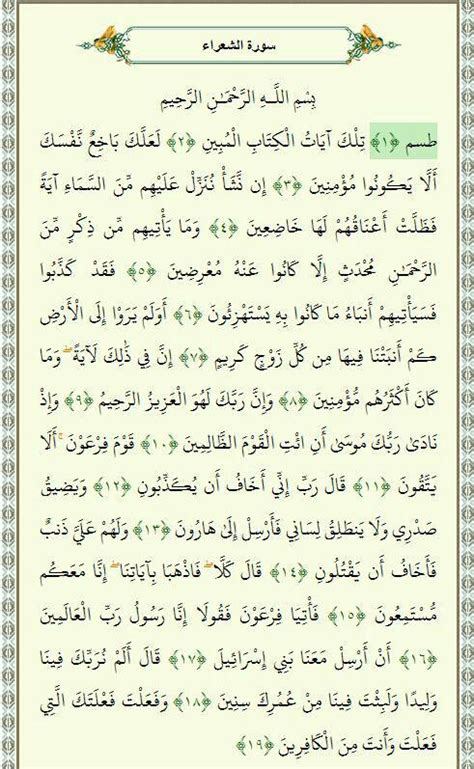 سورة الشعراء
بِسْمِ اللَّـهِ الرَّحْمَـٰنِ الرَّحِيمِ
طسم ﴿١﴾ تِلْكَ آيَاتُ الْكِتَابِ الْمُبِينِ ﴿٢﴾ لَعَلَّكَ بَاخِعٌ نَّفْسَكَ
أَلَّا يَكُونُوا مُؤْمِنِينَ ﴿٣﴾ إِن نَّشَأْ نُنَزِّلْ عَلَيْهِم مِّنَ السَّمَاءِ آيَةً
فَظَلَّتْ أَعْنَاقُهُمْ لَهَا خَاضِعِينَ ﴿٤﴾ وَمَا يَأْتِيهِم مِّن ذِكْرٍ مِّنَ
الرَّحْمَـٰنِ مُحْدَثٍ إِلَّا كَانُوا عَنْهُ مُعْرِضِينَ ﴿٥﴾ فَقَدْ كَذَّبُوا
فَسَيَأْتِيهِمْ أَنبَاءُ مَا كَانُوا بِهِ يَسْتَهْزِئُونَ ﴿٦﴾ أَوَلَمْ يَرَوْا إِلَى الْأَرْضِ
كَمْ أَنبَتْنَا فِيهَا مِن كُلِّ زَوْجٍ كَرِيمٍ ﴿٧﴾ إِنَّ فِي ذَٰلِكَ لَآيَةً ۖ وَمَا
كَانَ أَكْثَرُهُم مُّؤْمِنِينَ ﴿٨﴾ وَإِنَّ رَبَّكَ لَهُوَ الْعَزِيزُ الرَّحِيمُ ﴿٩﴾ وَإِذْ
نَادَىٰ رَبُّكَ مُوسَىٰ أَنِ ائْتِ الْقَوْمَ الظَّالِمِينَ ﴿١٠﴾ قَوْمَ فِرْعَوْنَ ۚ أَلَا
يَتَّقُونَ ﴿١١﴾ قَالَ رَبِّ إِنِّي أَخَافُ أَن يُكَذِّبُونِ ﴿١٢﴾ وَيَضِيقُ
صَدْرِي وَلَا يَنطَلِقُ لِسَانِي فَأَرْسِلْ إِلَىٰ هَارُونَ ﴿١٣﴾ وَلَهُمْ عَلَيَّ ذَنبٌ
فَأَخَافُ أَن يَقْتُلُونِ ﴿١٤﴾ قَالَ كَلَّا ۖ فَاذْهَبَا بِآيَاتِنَا ۖ إِنَّا مَعَكُم
مُّسْتَمِعُونَ ﴿١٥﴾ فَأْتِيَا فِرْعَوْنَ فَقُولَا إِنَّا رَسُولُ رَبِّ الْعَالَمِينَ
﴿١٦﴾ أَنْ أَرْسِلْ مَعَنَا بَنِي إِسْرَائِيلَ ﴿١٧﴾ قَالَ أَلَمْ نُرَبِّكَ فِينَا
وَلِيدًا وَلَبِثْتَ فِينَا مِنْ عُمُرِكَ سِنِينَ ﴿١٨﴾ وَفَعَلْتَ فَعْلَتَكَ الَّتِي
فَعَلْتَ وَأَنتَ مِنَ الْكَافِرِينَ ﴿١٩﴾